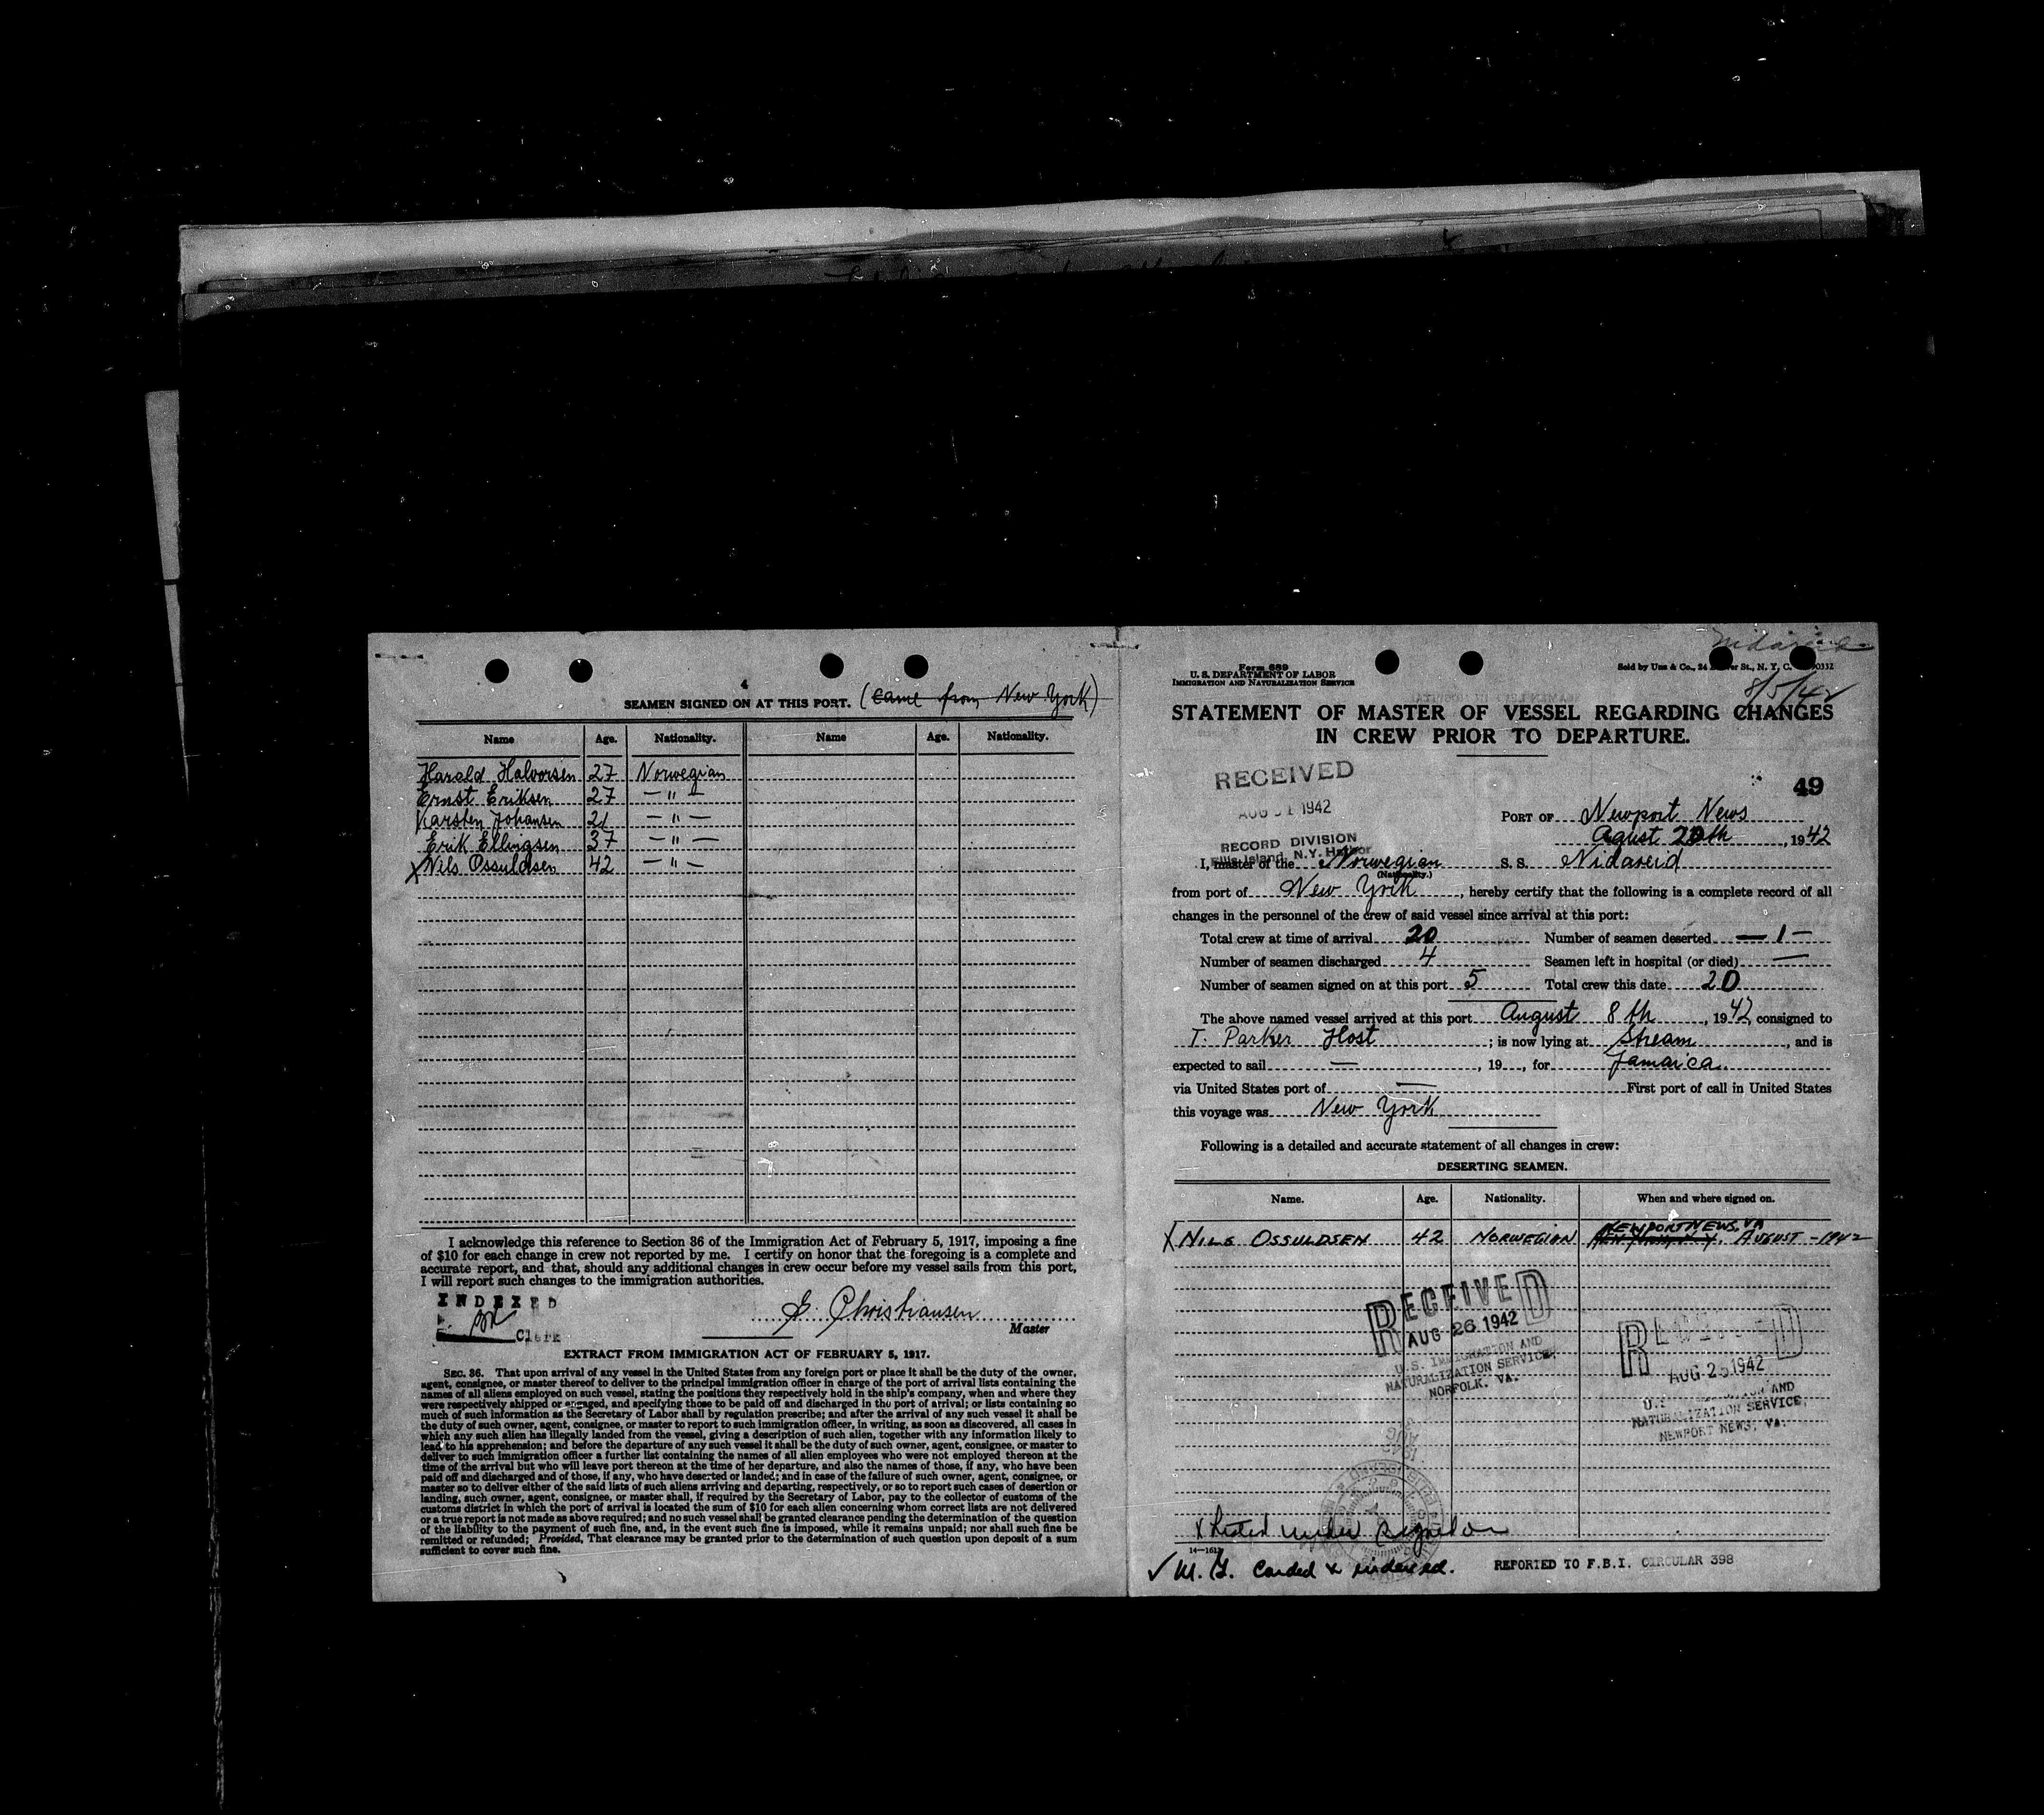 SEAMEN SIGNED ON AT THIS PORT. (Came from New York)
Name Age. Nationality. Name Age. Nationality.
Harald Halvorsen 27 Norwegian
Ernst Eriksen 27 — " —
Karsten Johansen 21 — " —
Erik Ellingsen 37 — " —
X Nils Ossuldsen 42 — " —
I acknowledge this reference to Section 36 of the Immigration Act of February 5, 1917, imposing a fine
of $10 for each change in crew not reported by me. I certify on honor that the foregoing is a complete and
accurate report, and that, should any additional changes in crew occur before my vessel sails from this port,
I will report such changes to the immigration authorities.
INDEXED
Clerk
E. Christiansen
Master
EXTRACT FROM IMMIGRATION ACT OF FEBRUARY 5, 1917.
SEC. 36. That upon arrival of any vessel in the United States from any foreign port or place it shall be the duty of the owner,
agent, consignee, or master thereof to deliver to the principal immigration officer in charge of the port of arrival lists containing the
names of all aliens employed on such vessel, stating the positions they respectively hold in the ship's company, when and where they
were respectively shipped or engaged, and specifying those to be paid off and discharged in the port of arrival; or lists containing so
much of such information as the Secretary of Labor shall by regulation prescribe; and after the arrival of any such vessel it shall be
the duty of such owner, agent, consignee, or master to report to such immigration officer, in writing, as soon as discovered, all cases in
which any such alien has illegally landed from the vessel, giving a description of such alien, together with any information likely to
lead to his apprehension; and before the departure of any such vessel it shall be the duty of such owner, agent, consignee, or master to
deliver to such immigration officer a further list containing the names of all alien employees who were not employed thereon at the
time of the arrival but who will leave port thereon at the time of her departure, and also the names of those, if any, who have been
paid off and discharged and of those, if any, who have deserted or landed; and in case of the failure of such owner, agent, consignee, or
master so to deliver either of the said lists of such aliens arriving and departing, respectively, or so to report such cases of desertion or
landing, such owner, agent, consignee, or master shall, if required by the Secretary of Labor, pay to the collector of customs of the
customs district in which the port of arrival is located the sum of $10 for each alien concerning whom correct lists are not delivered
or a true report is not made as above required; and no such vessel shall be granted clearance pending the determination of the question
of the liability to the payment of such fine, and, in the event such fine is imposed, while it remains unpaid; nor shall such fine be
remitted or refunded; Provided, That clearance may be granted prior to the determination of such question upon deposit of a sum
sufficient to cover such fine.
Form 689
U. S. DEPARTMENT OF LABOR
IMMIGRATION AND NATURALIZATION SERVICE
Sold by Unz & Co., 24 St., N. Y. C.
8/5/42
STATEMENT OF MASTER OF VESSEL REGARDING CHANGES
IN CREW PRIOR TO DEPARTURE.
RECEIVED
AUG 31 1942
RECORD DIVISION
Ellis Island, N.Y. Harbor
49
PORT OF Newport News
Agust 20th, 1942
I, master of the Norwegian S. S. Nidareid
(Nationality.)
from port of New York, hereby certify that the following is a complete record of all
changes in the personnel of the crew of said vessel since arrival at this port:
Total crew at time of arrival 20 Number of seamen deserted — 1 —
Number of seamen discharged 4 Seamen left in hospital (or died) —
Number of seamen signed on at this port 5 Total crew this date 20
The above named vessel arrived at this port August 8th, 1942, consigned to
T. Parker Host; is now lying at Stream, and is
expected to sail —, 19 , for Jamaica.
via United States port of — First port of call in United States
this voyage was New York
Following is a detailed and accurate statement of all changes in crew:
DESERTING SEAMEN.
Name. Age. Nationality. When and where signed on.
NEWPORT NEWS, VA
X NILS OSSULDSEN 42 NORWEGION AUGUST - 1942
RECEIVED
AUG 26 1942
U.S. IMMIGRATION AND
NATURALIZATION SERVICE,
NORFOLK, VA.
RECEIVED
AUG 25 1942
U.S. AND
NATURALIZATION SERVICE,
NEWPORT NEWS, VA.
X Listed under
✓ M. G. Carded & indexed.
REPORTED TO F.B.I. CIRCULAR 398